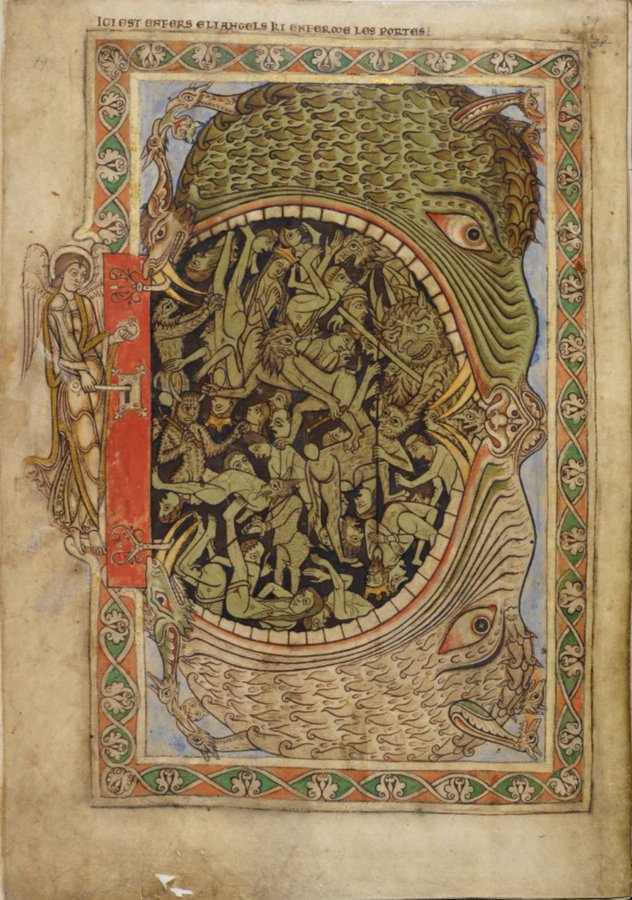 ICI EST ENFERS E LI ANGELS KI ENFERME LES PORTES:
39